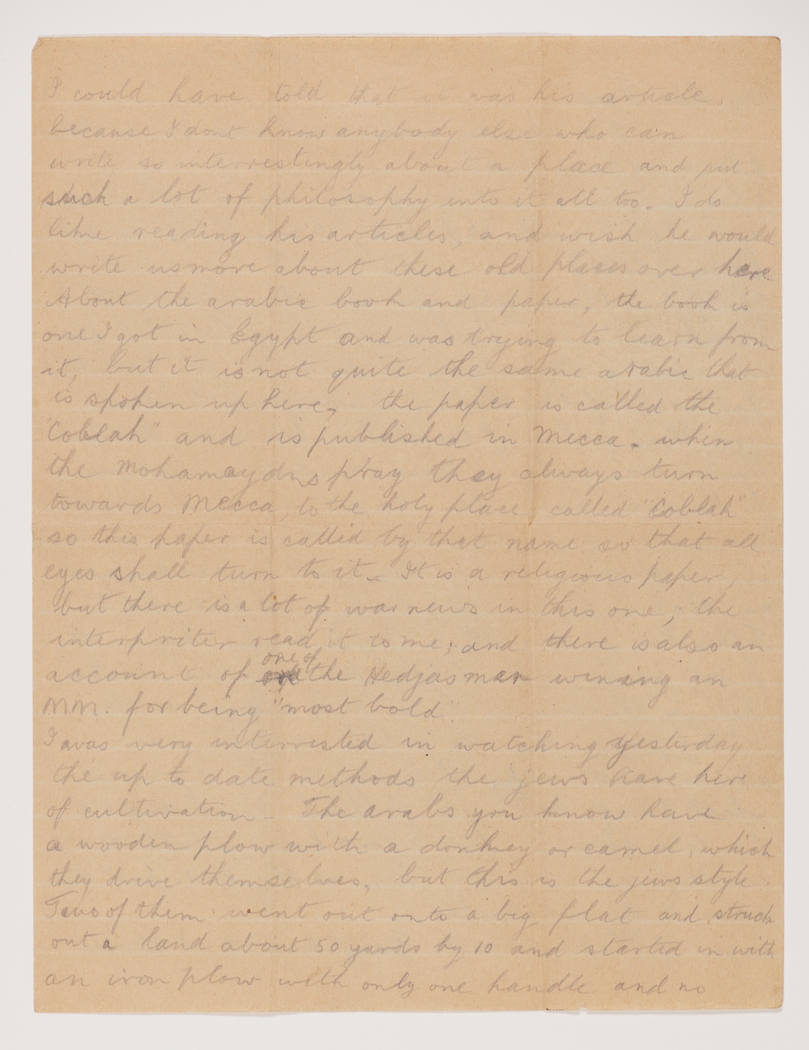 I could have told that it was his article,
because I dont know anybody else who can
write so interrestingly about a place and put
such a lot of philosophy into it all too. I do
like reading his articles, and wish he would
write us more about these old places over here
About the arabic book and paper, the book is
one I got in Egypt and was trying to learn from
it, but it is not quite the same arabic that
is spoken up here, the paper is called the
"Coblah" and is published in Mecca. when
the Mohamaydns pray they always turn
towards Mecca, to the holy place called "Coblah"
so this paper is called by that name so that all
eyes shall turn to it. It is a religious paper,
but there is a lot of war news in this one, the
interpriter read it to me, and there is also an
account of one of the Hedjas men wining an
M.M. for being "most bold"
I was very interrested in watching yesterday
the up to date methods the jews have here
of cultivation. The arabs you know have
a wooden plow with a donkey or camel, which
they drive themselves, but this is the jews style.
Two of them went out onto a big flat and struck
out a land about 50 yards by 10 and started in with
an iron plow with only one handle and no